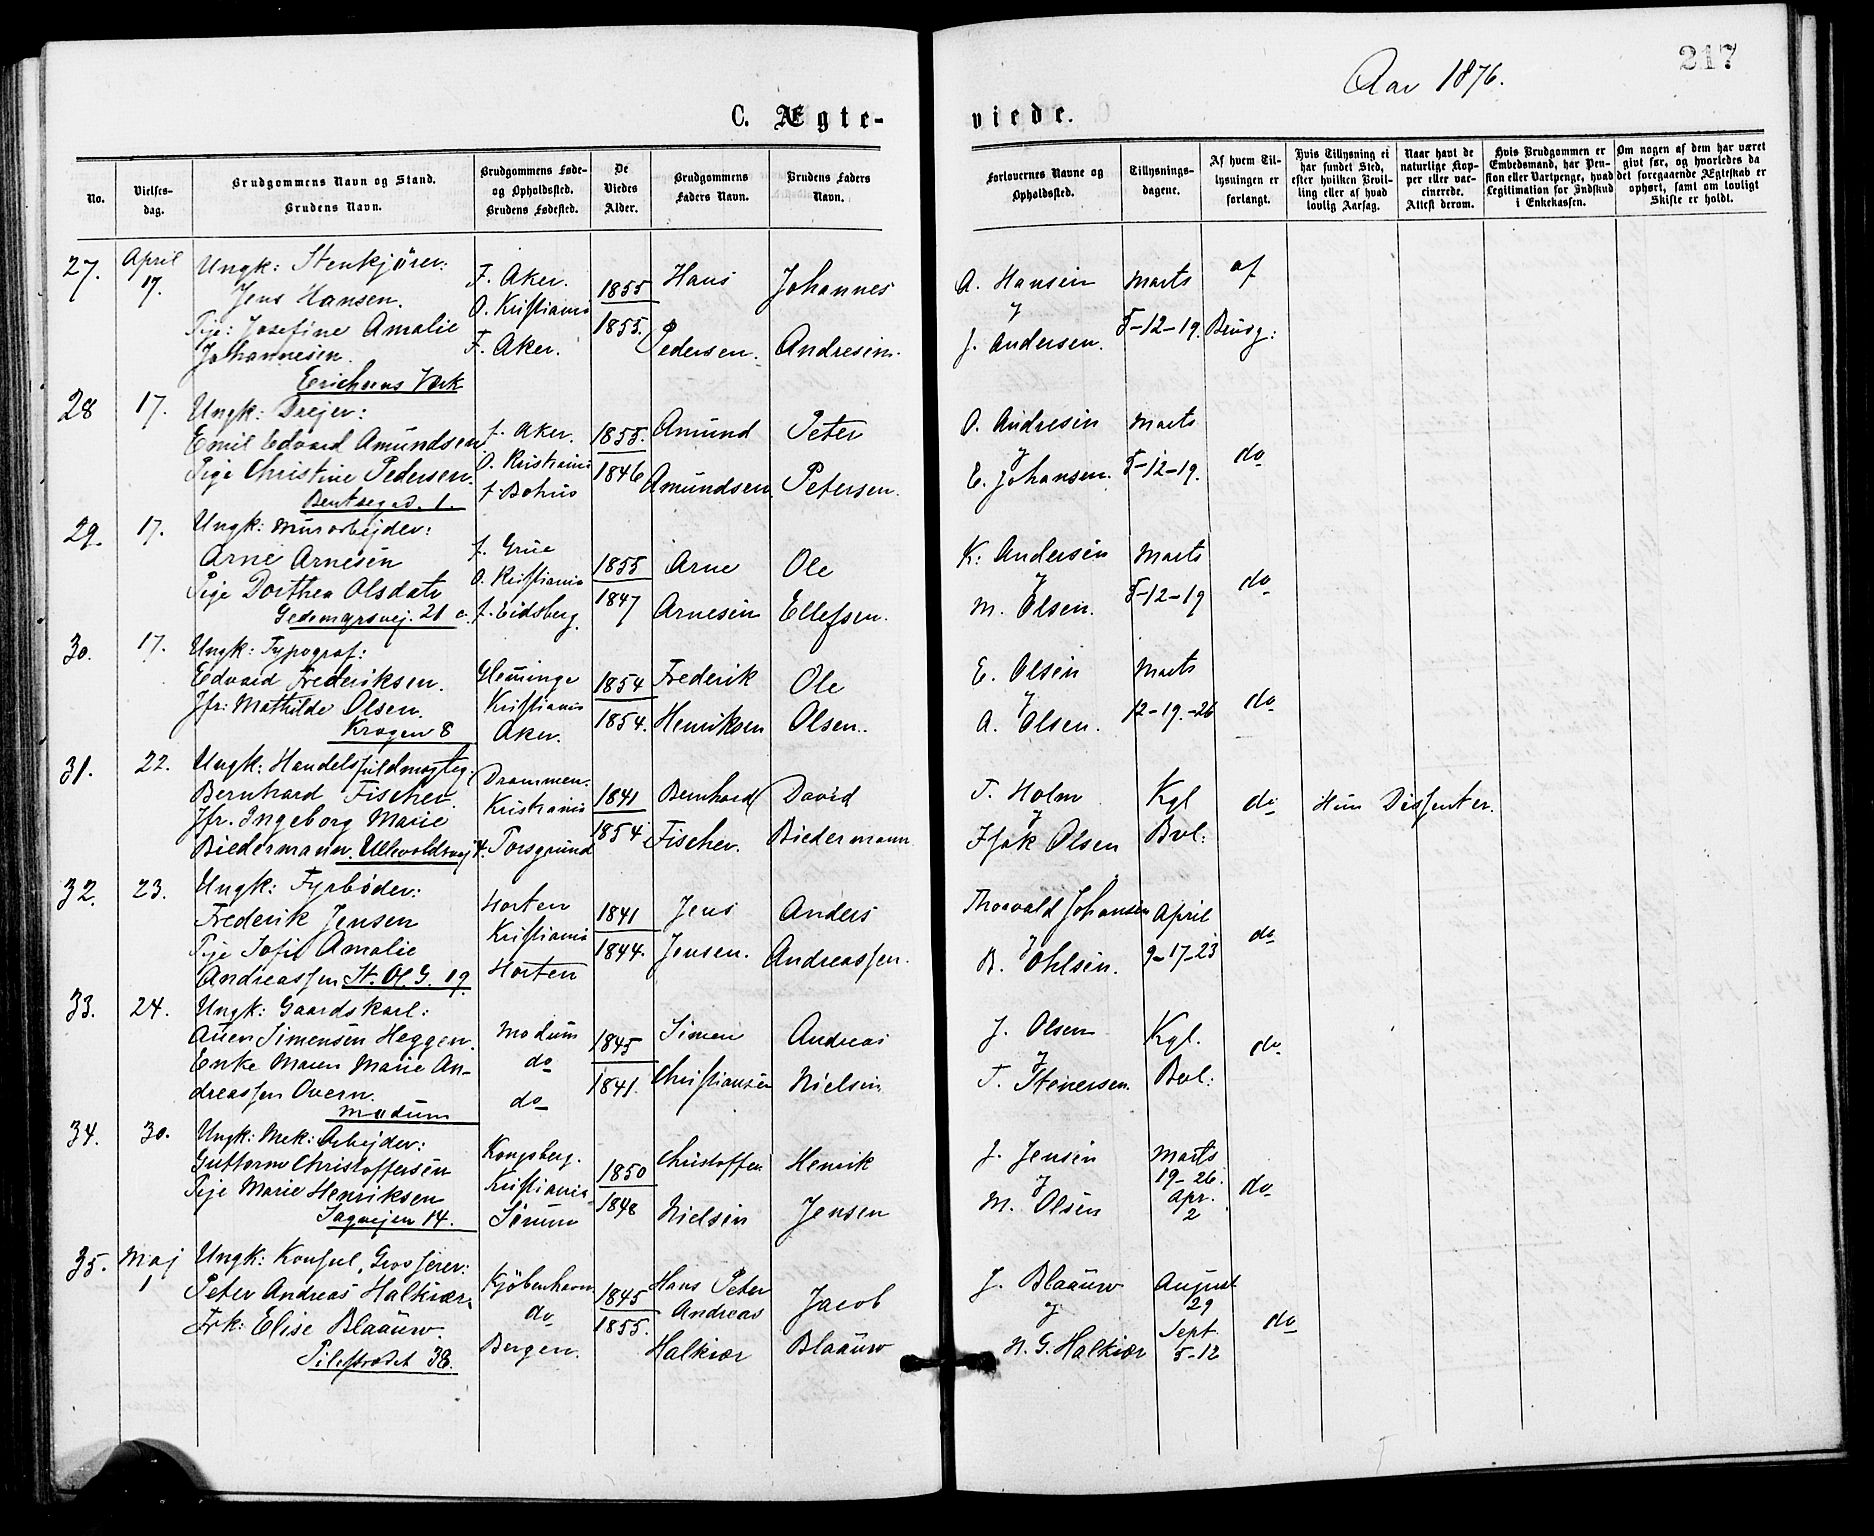 217
Aar 1876.
C. Ægte-
viede.
No.
Vielses-
dag.
Brudgommens Navn og Stand.
Brudens Navn.
Brudgommens Føde-
og Opholdssted.
Brudens Fødested.
De
Viedes
Alder.
Brudgommens
Faders Navn.
Brudens Faders
Navn.
Forlovernes Navne og
Opholdssted.
Tillysnings-
dagene.
Af hvem Til-
lysningen er
forlangt.
Hvis Tillysning ei
har fundet Sted,
efter hvilken Bevil-
ling eller af hvad
lovlig Aarsag.
Naar havt de
naturlige Kop-
per eller vac-
cinerede.
Attest derom.
Hvis Brudgommen er
Embedsmand, har Pen-
sion eller Vartpenge, hvad
Legitimation for Indskud
i Enkekassen.
Om nogen af dem har været
gift før, og hvorledes da
det foregaaende Ægteskab er
ophørt, samt om lovligt
Skifte er holdt.
27. April 17.
Ungk: Stenkjører:
Jens Hansen.
Pige: Josefine Amalie
Johannesen.
F. Aker.
O. Kristiania
F. Aker.
1855
1855.
Hans
Pedersen.
Johannes
Andresen.
A. Hansen
J. Andersen.
Marts
5-12-19.
af
Brudg:
28 17.
Ungk: Drejer:
Emil Edvard Amundsen
Pige Christine Pedersen.
Bentseg d. 1.
f. Aker.
O. Kristiania
f. Bohus
1855.
1846
Amund
Amundsen
Peter
Petersen.
O. Andresen
E. Johansen.
Marts
5-12-19.
do
29. 17.
Ungk: Murarbejder:
Arne Arnesen
Pige Dorthea Olsdatr
21 c.
f. Grue
O. Kristiania
f. Eidsberg.
1855
1847
Arne
Arnesen
Ole
Ellefsen.
K: Andersen
M. Olsen.
Marts
5-12-19
do
30. 17.
Ungk: Typograf:
Edvard Frederiksen.
Jfr: Mathilde Olsen.
Krogen 8
Glemminge
Kristiania
Aker.
1854
1854.
Frederik
Henriksen
Ole
Olsen.
E. Olsen
A. Olsen.
Marts
12-19.-26
do
31. 22.
Ungk: Handelsfuldmægtig:
Bernhard Fischer.
Jfr. Ingeborg Marie
Biedermann. Ullevoldsvej 4.
Drammen.
Kristiania
Porsgrund
1841
1854
Bernhard
Fischer.
David
Biedermann
T. Holm
Isak Olsen
Kgl
Bvl:
do
Hun Dissenter.
32. 23.
Ungk: Fyrbøder:
Frederik Jensen
Pige Sofie Amalie
Andreassen St. Ol. G. 19.
Horten
Kristiania
Horten
1841
1844.
Jens
Jensen.
Anders
Andreassen.
Thorvald Johansen
B. Ohlsen.
April
9-17-23
do
33. 24.
Ungk: Gaardskarl:
Auen Simensen Heggen.
Enke Maren Marie An-
dreassen Overn.
Modum
Modum
do
do
1845
1841.
Simen
Christiansen
Andreas
Nielsen
J. Olsen
T. Steneersen.
Kgl.
Bvl:
do
34. 30.
Ungk: Mek: Arbejder:
Guttorm Christoffersen
Pige Marie Henriksen
Sagvejen 14.
Kongsberg.
Kristiania
Sørum
1850
1848
Christoffer
Nielsen
Henrik
Jensen
J. Jensen
M. Olsen
Marts
19-26.
Apr.
2
do
35. Maj 1
Ungk: Konsul, Grosserer:
Peter Andreas Halkier.
Frk: Elise Blaauw.
Pilestrædet 38.
Kjøbenhavn
do
Bergen.
1845
1855.
Hans Peter
Andreas
Halkier
Jacob
Blaauw
J. Blaauw
N. G. Halkier
August
29
Sept.
5-12
do